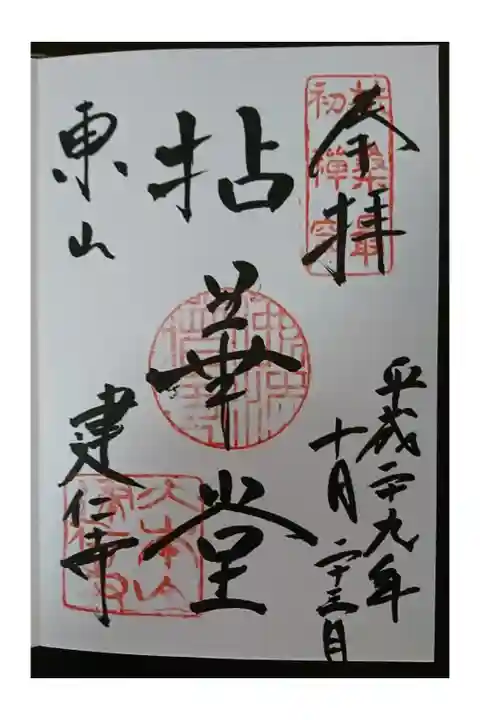 奉拝
扶桑最
初禪窟
平成二十九年
十月二十三日
拈華堂
東山
建仁寺
大本山